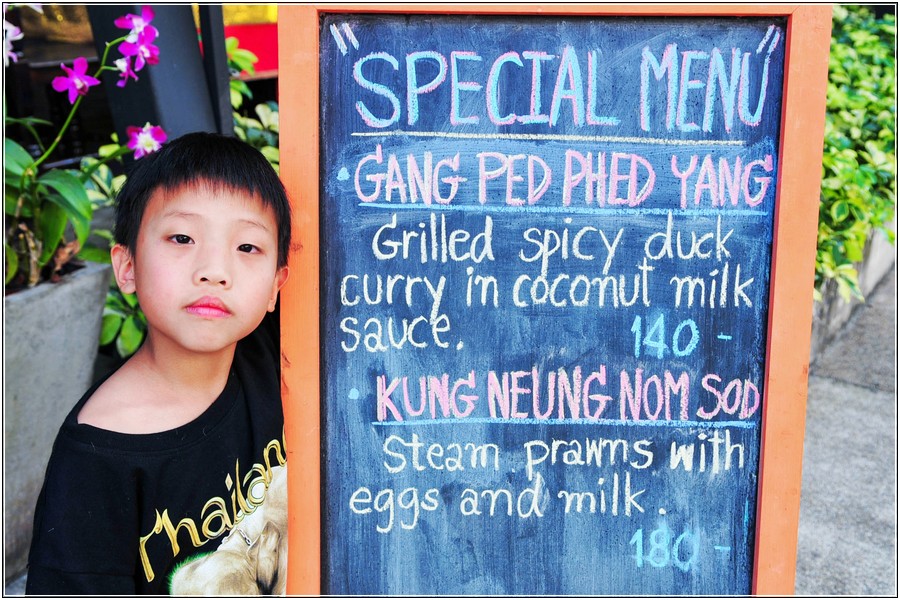 "SPECIAL MENU"
GANG PED PHED YANG
Grilled spicy duck
curry in coconut milk
sauce.
140 -
KUNG NEUNG NOM SOD
Steam prawns with
eggs and milk.
180 -
Thailand